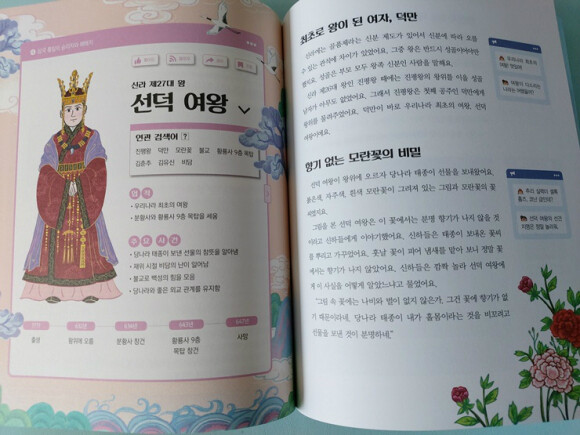 신라 제27대 왕
선덕 여왕
연관 검색어 ?
진평왕 덕만 모란꽃 불교 황룡사 9층 목탑
김춘추 김유신 비담
업적
• 우리나라 최초의 여왕
• 분황사와 황룡사 9층 목탑을 세움
주요 사건
• 당나라 태종이 보낸 선물의 참뜻을 알아냄
• 재위 시절 비담의 난이 일어남
• 불교로 백성의 힘을 모음
• 당나라와 좋은 외교 관계를 유지함
632년 634년 645년 647년
출생 왕위에 오름 분황사 창건 황룡사 9층 사망
목탑 창건
최초로 왕이 된 여자, 덕만
신라에는 골품제라는 신분 제도가 있어서 신분에 따라 오를
수 있는 관직에 차이가 있었어요. 그중 왕은 반드시 성골이어야만
했지요. 성골은 부모 모두 왕족 신분인 사람을 말해요.
신라 제26대 왕인 진평왕 때에는 진평왕의 왕위를 이을 성골
남자가 아무도 없었어요. 그래서 진평왕은 첫째 공주인 덕만에게
왕위를 물려주었어요. 덕만이 바로 우리나라 최초의 여왕, 선덕
여왕이에요.
우리나라 최초의
여왕!
향기 없는 모란꽃의 비밀
선덕 여왕이 왕위에 오르자 당나라 태종이 선물을 보내왔어요.
붉은색, 자주색, 흰색 모란꽃이 그려져 있는 그림과 모란꽃의 꽃
씨였지요.
그림을 본 선덕 여왕은 이 꽃에서는 분명 향기가 나지 않을 것
이라고 신하들에게 이야기했어요. 신하들은 태종이 보내온 꽃씨
를 뿌리고 가꾸었어요. 훗날 꽃이 피어 냄새를 맡아 보니 정말 꽃
에서는 향기가 나지 않았어요. 신하들은 깜짝 놀라 선덕 여왕에
게 이 사실을 어떻게 알았느냐고 물었어요.
"그림 속 꽃에는 나비와 벌이 없지 않은가. 그건 꽃에 향기가 없
기 때문이라네. 당나라 태종이 내가 홀몸이라는 것을 비꼬려고
선물을 보낸 것이 분명하네."